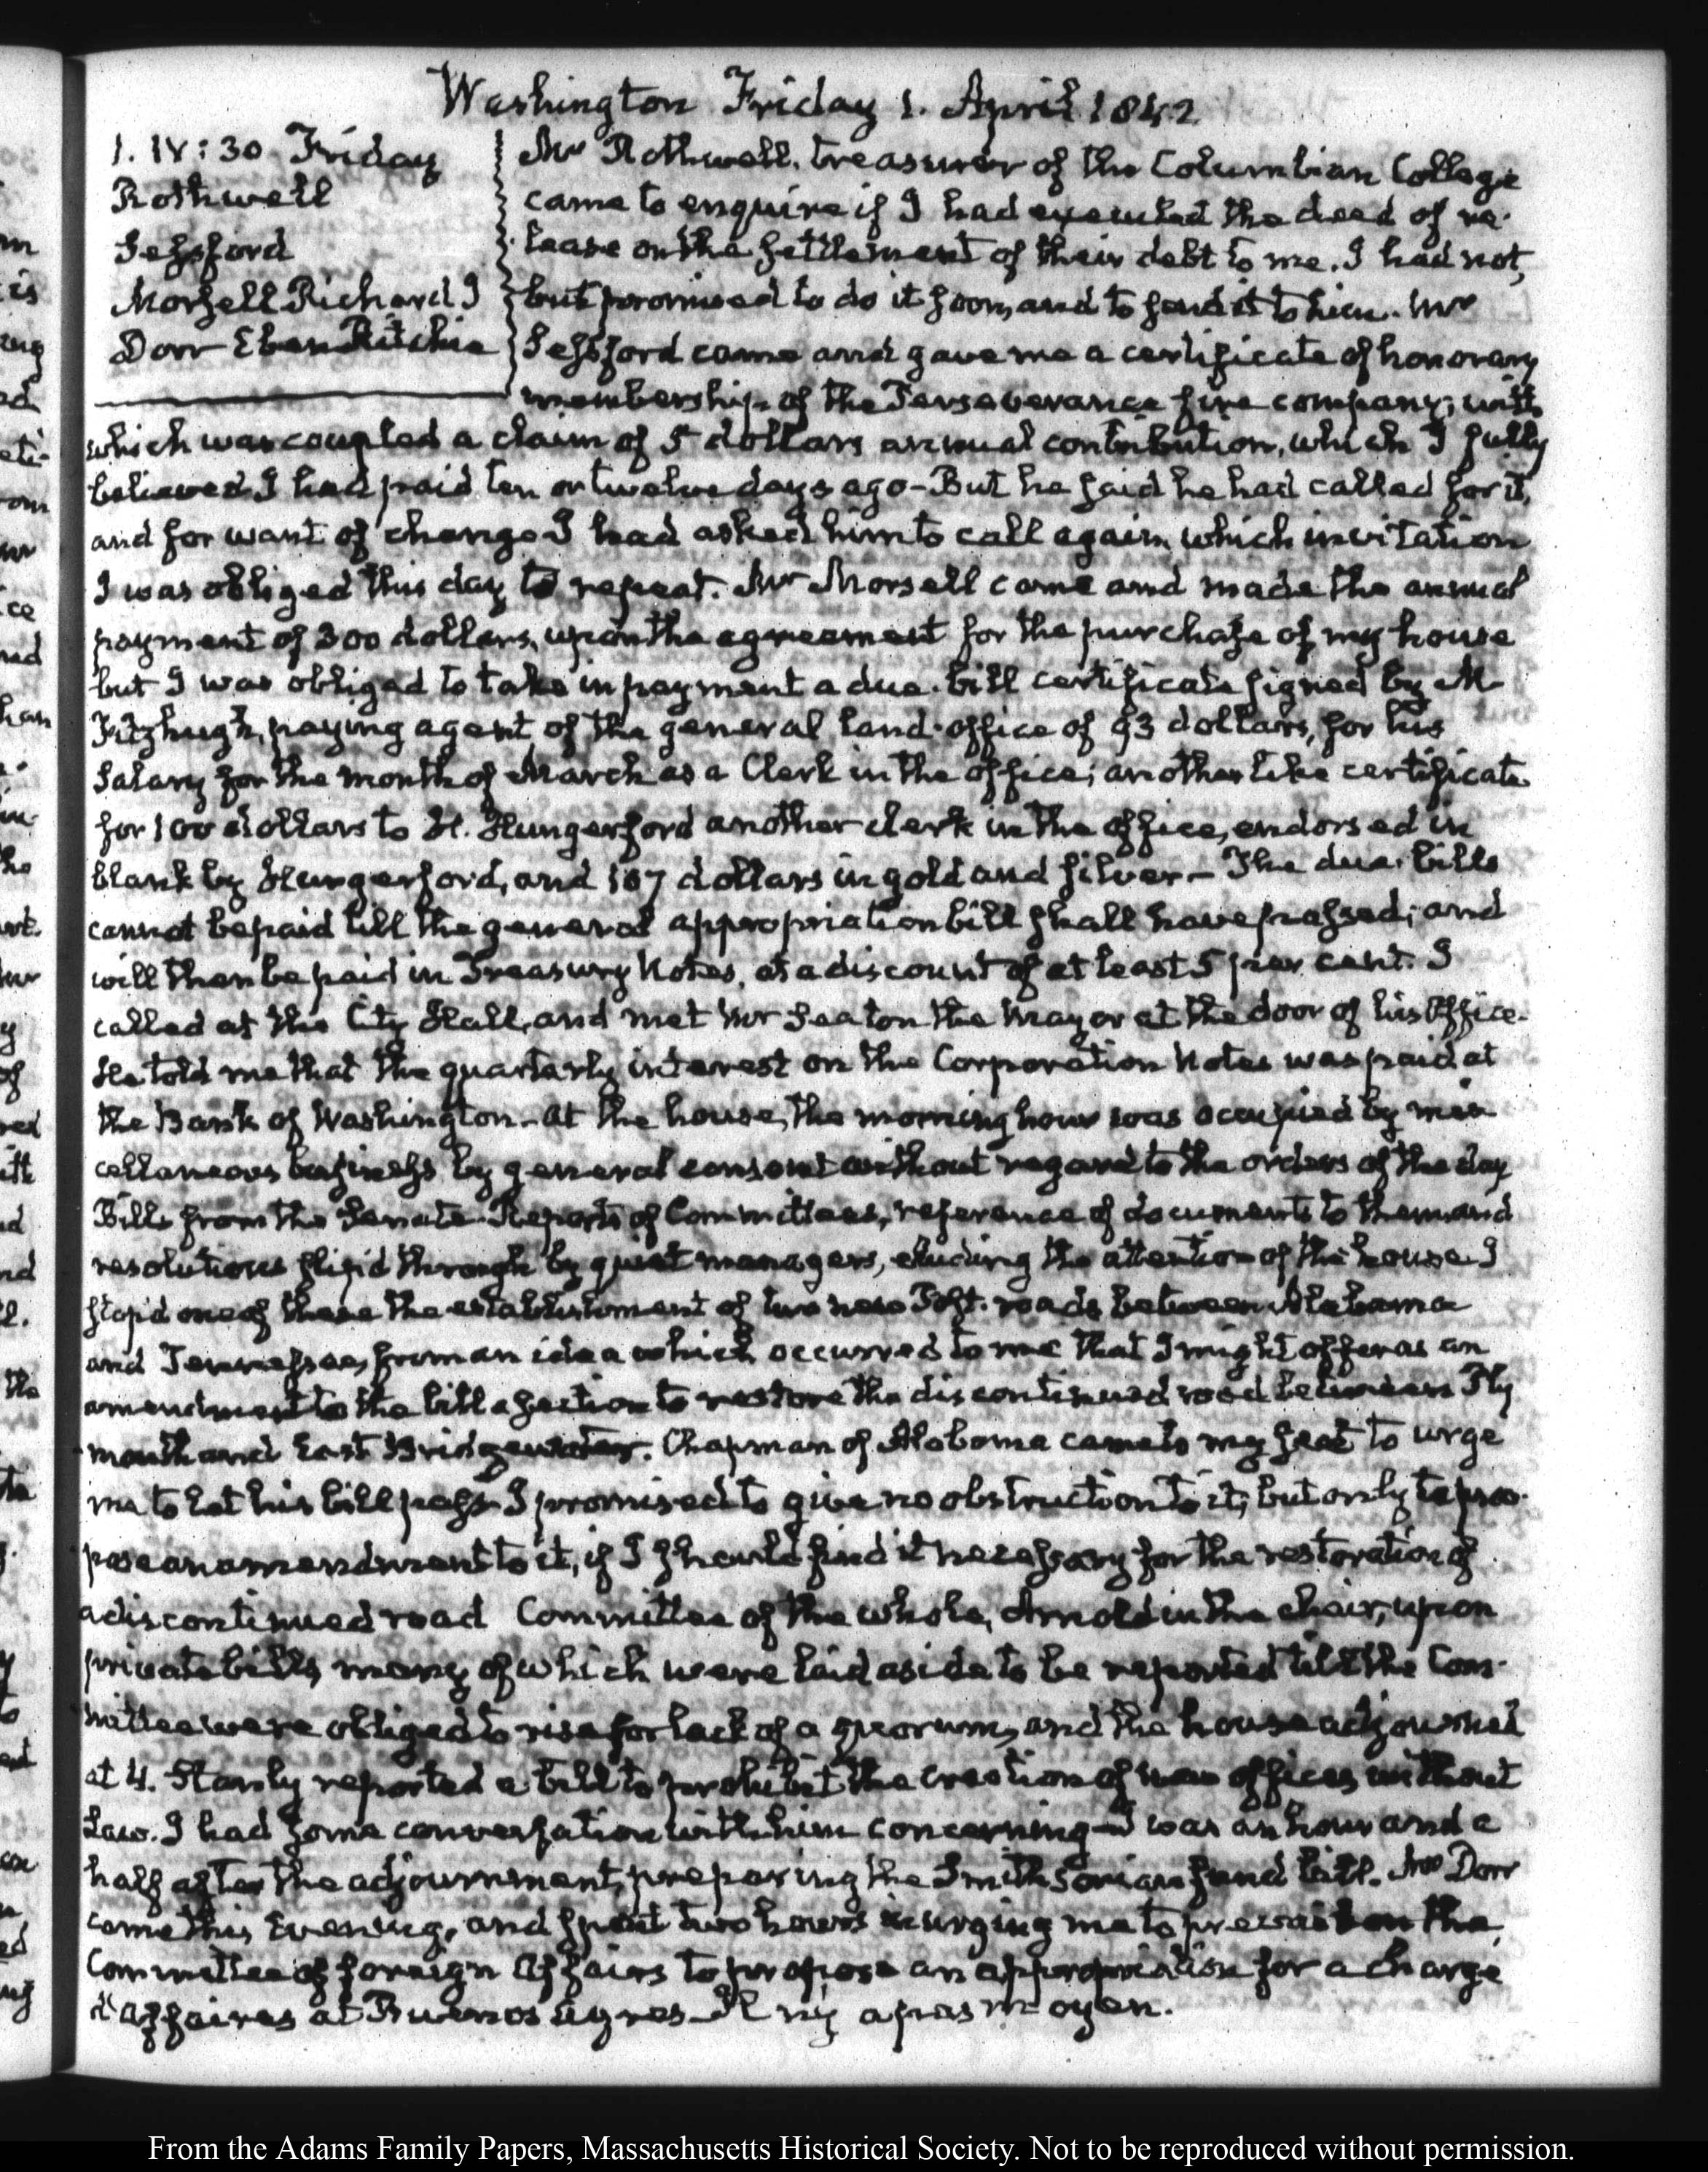 Washington Friday 1. April 1842
1. IV:30 Friday
Rothwell
Sessford
Morsell Richard I
Dorr Eben Ritchie
Mr Rothwell, treasurer of the Columbian College
came to enquire if I had executed the deed of re-
lease on the settlement of their debt to me. I had not,
but promised to do it soon, and to send it to him. Mr
Sessford came and gave me a certificate of honorary
membership of the Perseverance fire company; with
which was coupled a claim of 5 dollars annual contribution, which I fully
believed I had paid ten or twelve days ago- But he said he had called for it,
and for want of change I had asked him to call again, which invitation
I was obliged this day to repeat. Mr Morsell came and made the annual
payment of 300 dollars, upon the agreement for the purchase of my house
but I was obliged to take in payment a due-bill certificate signed by M
Fitzhugh, paying agent of the general land-office of 93 dollars, for his
Salary for the month of March as a Clerk in the office; another like certificate
for 100 dollars to H. Hungerford another clerk in the office, endorsed in
blank by Hungerford, and 107 dollars in gold and silver- The due-bills
cannot be paid till the general appropriation bill shall have passed; and
will then be paid in Treasury Notes, at a discount of at least 5 per cent. I
called at the City Hall, and met Mr Seaton the Mayor at the door of his Office-
He told me that the quarterly interest on the Corporation Notes was paid at
the Bank of Washington- At the house, the morning hour was occupied by mis-
cellaneous business by general consent without regard to the orders of the day
Bills from the Senate- Reports of Committees, reference of documents to them and
resolutions slip'd through by quiet managers, eluding the attention of the house. I
stop'd one of these the establishment of two new Post-roads between Alabama
and Tennessee, from an idea which occurred to me that I might offer as an
amendment to the bill a section to restore the discontinued road between Ply-
mouth and East Bridgewater. Chapman of Alabama came to my seat to urge
me to let his bill pass- I promised to give no obstruction to it; but only to pro-
pose an amendment to it, if I should find it necessary for the restoration of
a discontinued road Committee of the whole, Arnold in the chair, upon
private bills, many of which were laid aside to be reported till the Com-
mittee were obliged to rise for lack of a quorum, and the house adjourned
at 4. Stanly reported a bill to prohibit the creation of new offices without
Law. I had some conversation with him concerning it- I was an hour and a
half after the adjournment, preparing the Smithsonian fund bill. Mr Dorr
came this Evening, and spent two hours in urging me to prevail on the
Committee of foreign Affairs to propose an appropriation for a chargé
d'affaires at Buenos Ayres- Il n'y a pas moyen.
From the Adams Family Papers, Massachusetts Historical Society. Not to be reproduced without permission.